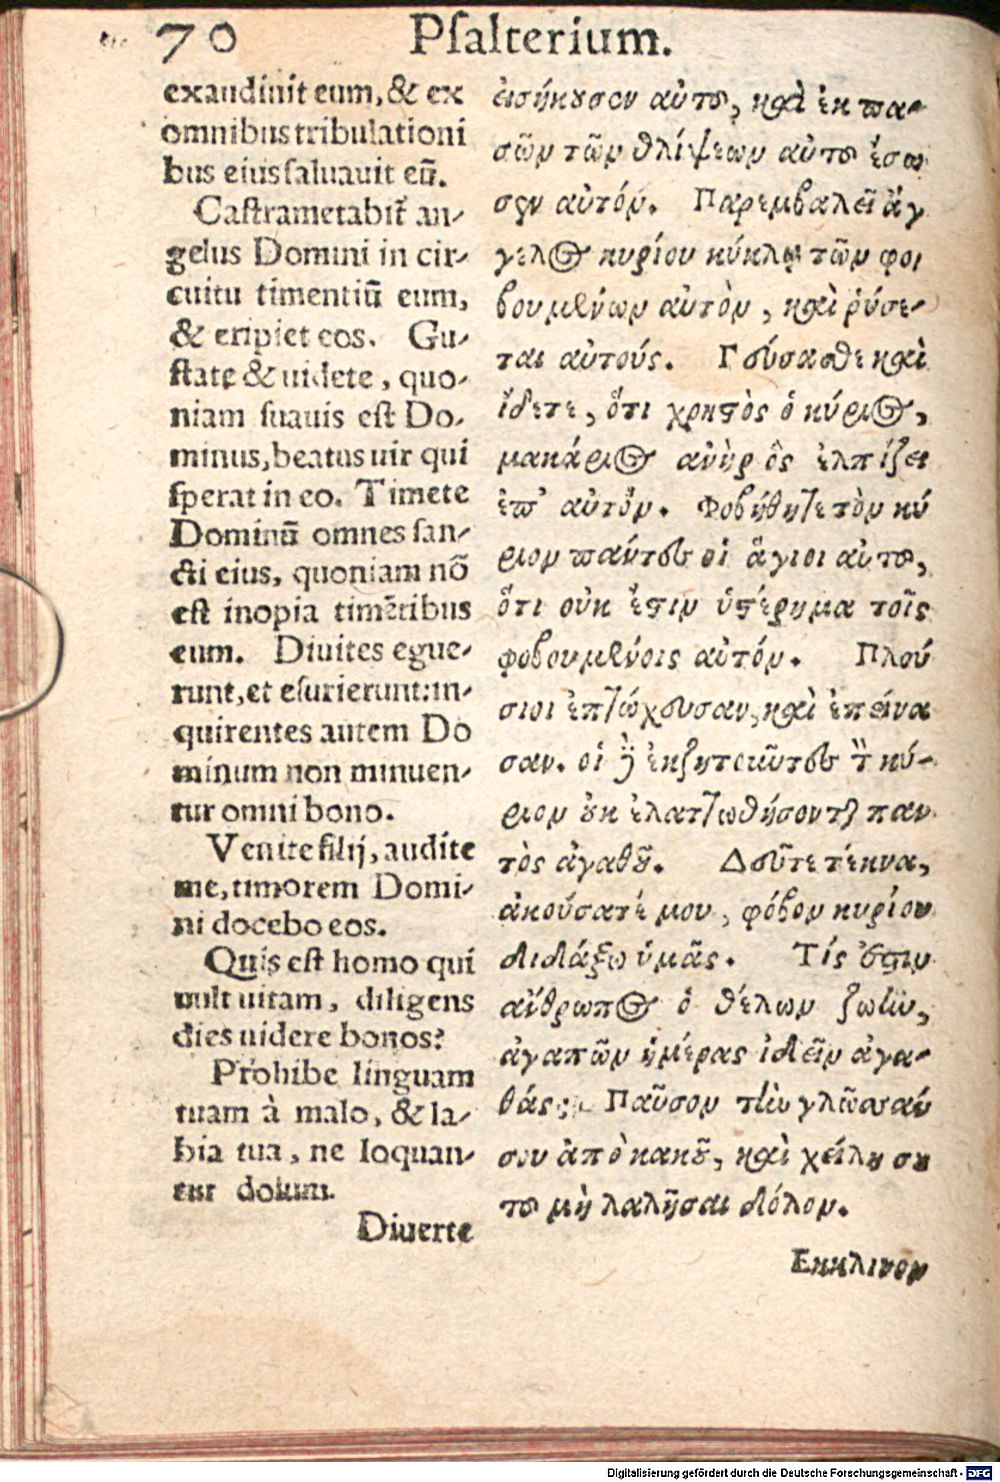 70 Psalterium.
exaudiuit eum, & ex
omnibus tribulationi
bus eius saluauit eū.
Castrametabit̃ an-
gelus Domini in cir-
cuitu timentiū eum,
& eripiet eos. Gu-
state & uidete, quo-
niam suauis est Do-
minus, beatus uir qui
sperat in eo. Timete
Dominū omnes san-
cti eius, quoniam nō
est inopia timētibus
eum. Diuites egue-
runt, et esurierunt: in-
quirentes autem Do
minum non minuen-
tur omni bono.
Venite filij, audite
me, timorem Domi-
ni docebo eos.
Quis est homo qui
uult uitam, diligens
dies uidere bonos?
Prohibe linguam
tuam à malo, & la-
bia tua, ne loquan-
tur dolum.
Diuerte
εισήκουσεν αὐτοῦ, καὶ ἐκ πα-
σῶν τῶν θλίψεων αὐτοῦ ἔσω
σεν αὐτόν. Παρεμβαλεῖ ἄγ
γελος κυρίου κύκλῳ τῶν φοι
βουμένων αὐτὸν, καὶ ῥύσε-
ται αὐτούς. Γεύσασθε καὶ
ἴδετε, ὅτι χρηστὸς ὁ κύριος,
μακάριος ἀνὴρ ὃς ἐλπίζει
ἐπ' αὐτόν. Φοβήθητε τὸν κύ
ριον πάντες οἱ ἅγιοι αὐτοῦ,
ὅτι οὐκ ἔστιν ὑστέρημα τοῖς
φοβουμένοις αὐτόν. Πλού
σιοι ἐπτώχευσαν, καὶ ἐπείνα
σαν. οἱ δὲ ἐκζητοῦντες τὸν κύ-
ριον οὐκ ἐλαττωθήσονται παν
τὸς ἀγαθοῦ. Δεῦτε τέκνα,
ἀκούσατέ μου, φόβον κυρίου
διδάξω ὑμᾶς. Τίς ἐστιν
ἄνθρωπος ὁ θέλων ζωὴν,
ἀγαπῶν ἡμέρας ἰδεῖν ἀγα-
θάς; Παῦσον τὴν γλῶσσάν
σου ἀπὸ κακοῦ, καὶ χείλη σου
τοῦ μὴ λαλῆσαι δόλον.
Εκκλινον
Digitalisierung gefördert durch die Deutsche Forschungsgemeinschaft - DFG